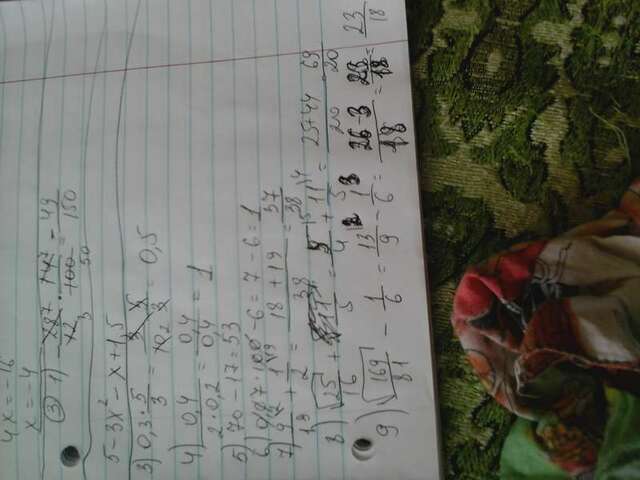 4x = -16
x = -4
③ 1) -28⁷/12₃ · 14⁷/100₅₀ = -49/150
5-3x² - x + 1,5
3) 0,3 · 5/3 = 3/10₂ 5/3 = 0,5
4) 0,4/2·0,2 = 0,4/0,4 = 1
5) 70 - 17 = 53
6) 0,07 · 100 - 6 = 7 - 6 = 1
7) 9/19 + 1/2 = 18 + 19/38 = 37/38
8) √25/16 + 11/5 = 5/4 + 11/5 = 25+44/20 69/20
9) √169/81 - 1/6 = 13/9 - 1/6 = 26-3/18 = 23/18 = 23/18